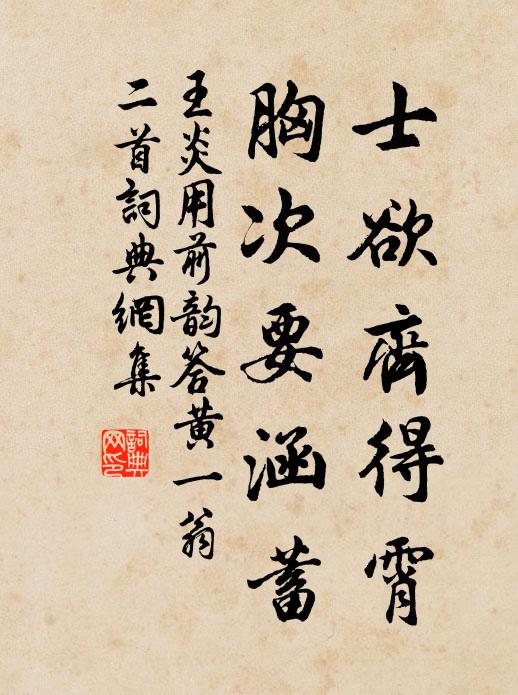 士欲齊得霄
胸次要涵蓄
王炎用前韵答黄一翁
二首詞典網集
詞典
网印